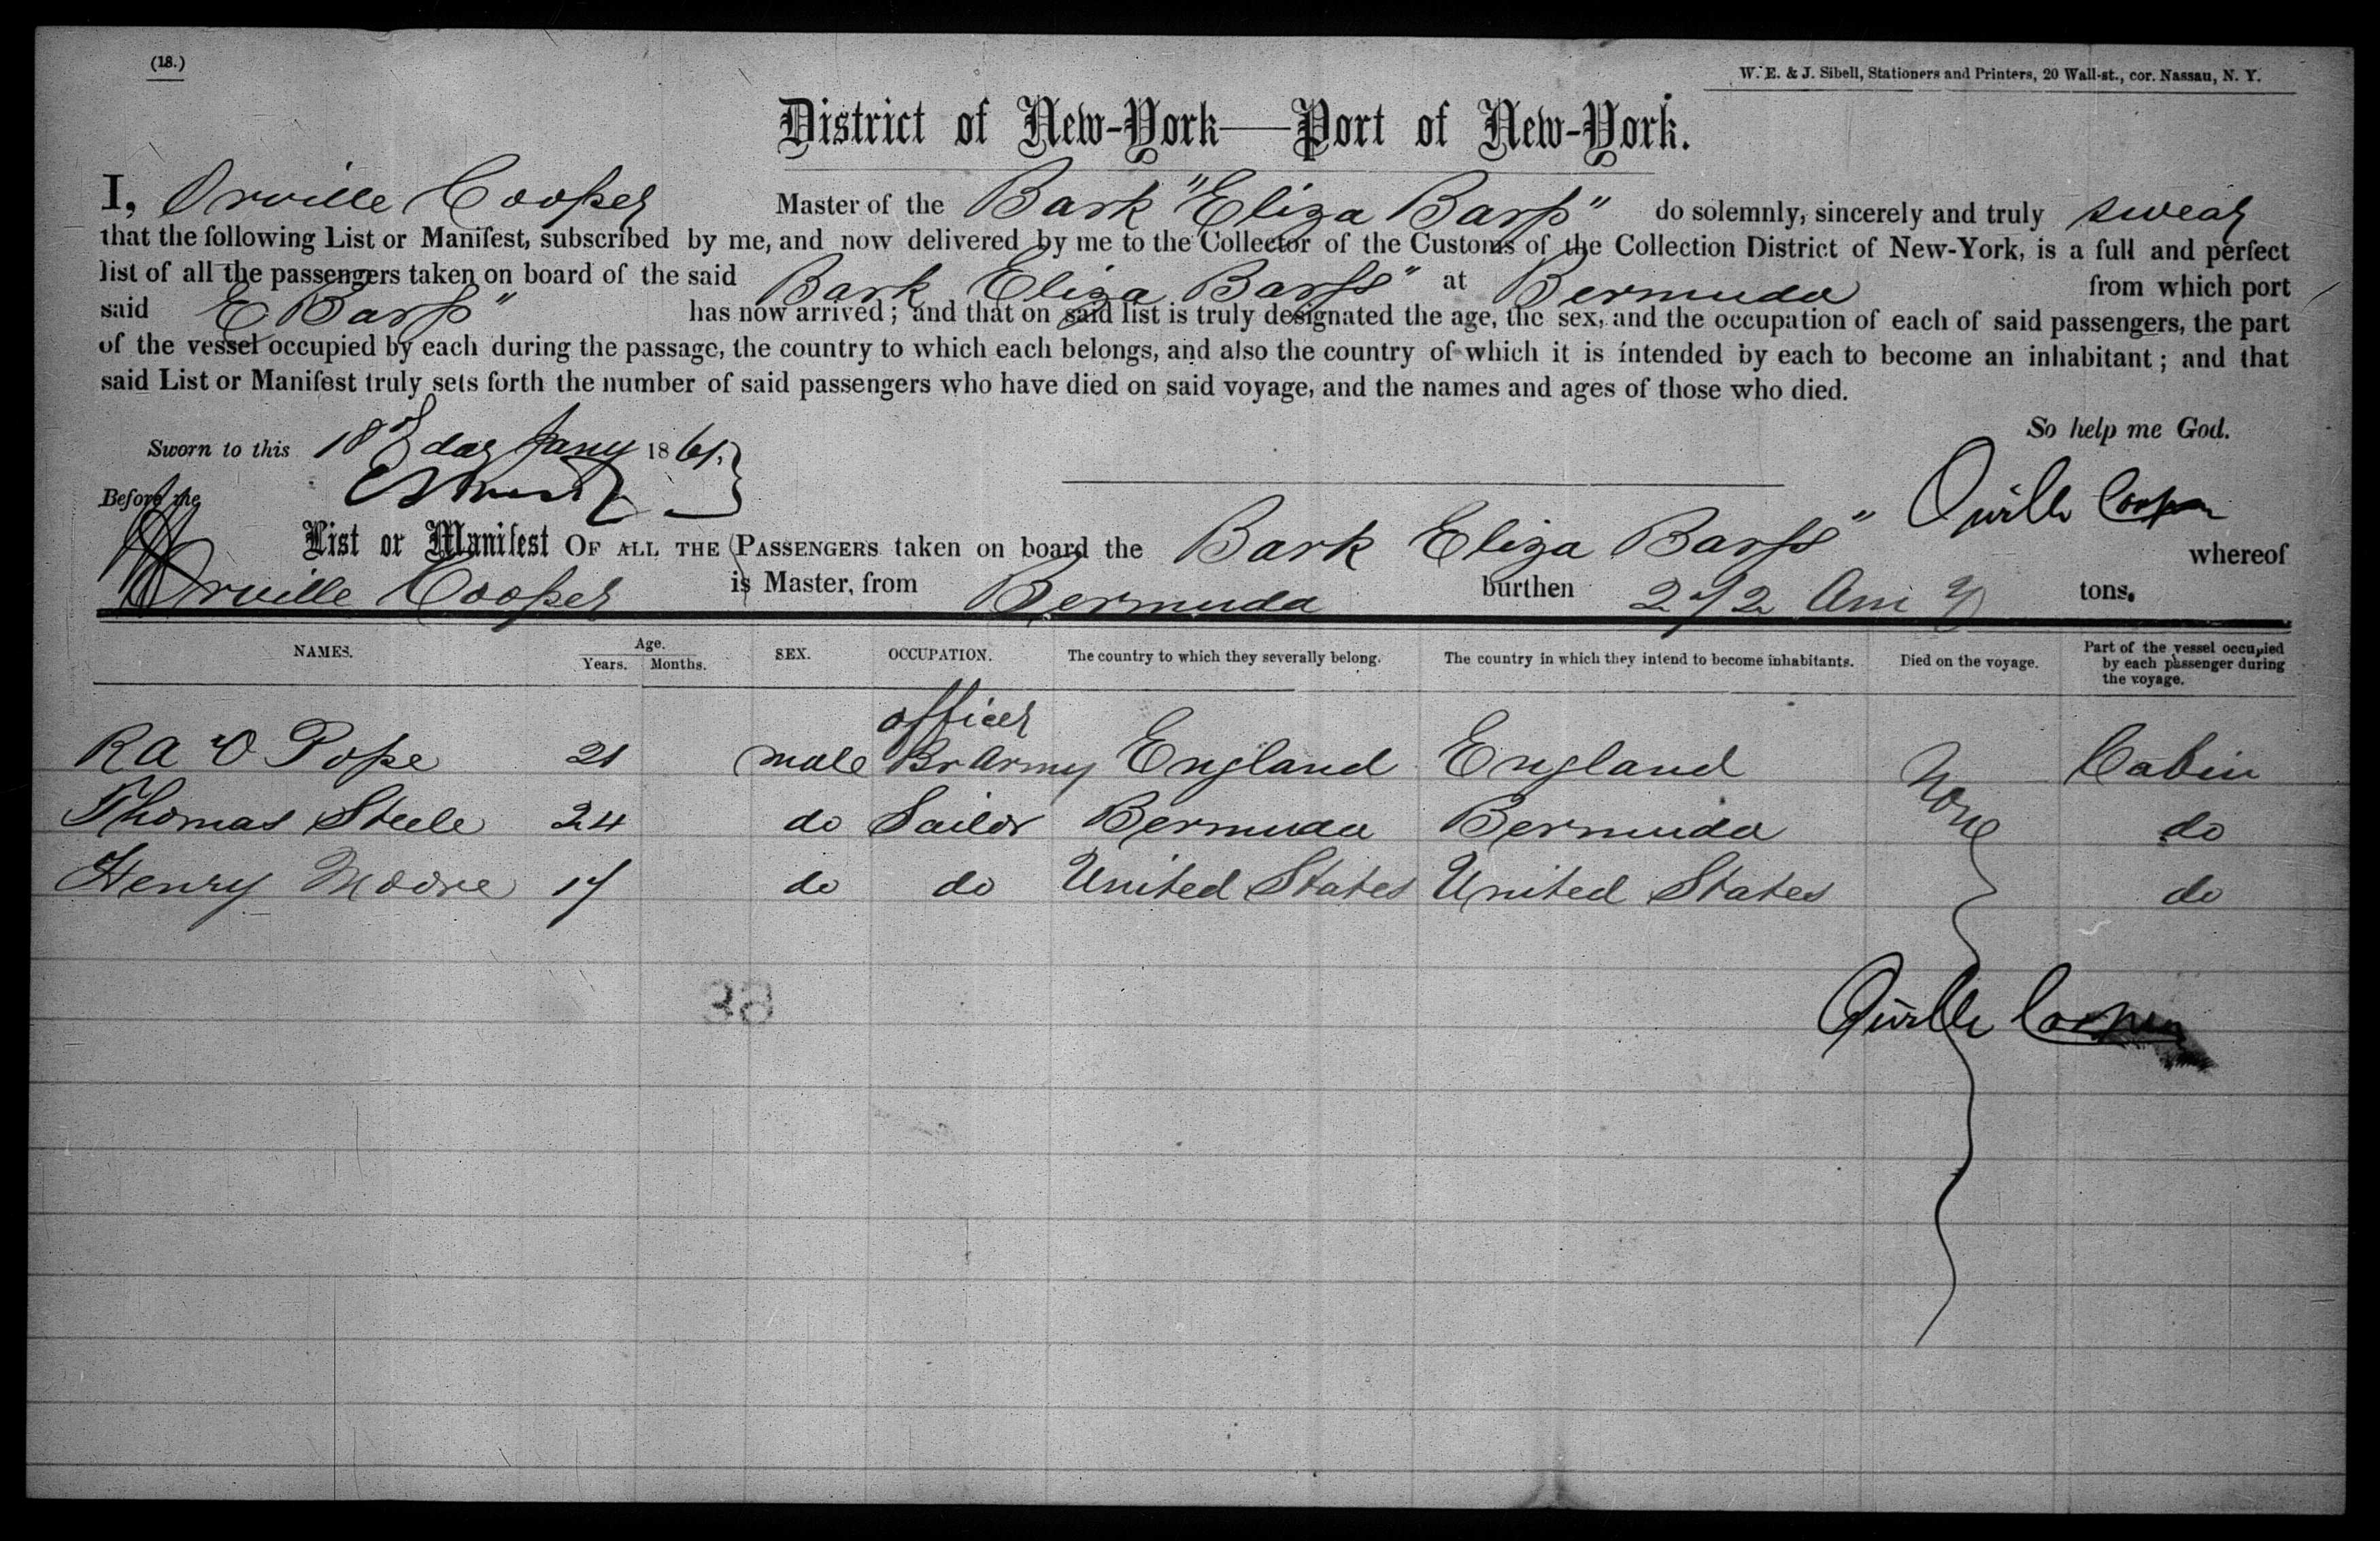 (18.)
W. E. & J. Sibell, Stationers and Printers, 20 Wall-st., cor. Nassau, N. Y.
District of New-York—Port of New-York.
I, Orville Cooper Master of the Bark "Eliza Barss" do solemnly, sincerely and truly swear
that the following List or Manifest, subscribed by me, and now delivered by me to the Collector of the Customs of the Collection District of New-York, is a full and perfect
list of all the passengers taken on board of the said Bark Eliza Barss" at Bermuda from which port
said E Barss" has now arrived; and that on said list is truly designated the age, the sex, and the occupation of each of said passengers, the part
of the vessel occupied by each during the passage, the country to which each belongs, and also the country of which it is intended by each to become an inhabitant; and that
said List or Manifest truly sets forth the number of said passengers who have died on said voyage, and the names and ages of those who died.
So help me God.
Sworn to this 18th day Jany 1861.
Before me
Orville Cooper
List or Manifest OF ALL THE PASSENGERS taken on board the Bark Eliza Barss" whereof
Orville Cooper is Master, from Bermuda burthen 272 tons.
NAMES. Age. Years. Months. SEX. OCCUPATION. The country to which they severally belong. The country in which they intend to become inhabitants. Died on the voyage. Part of the vessel occupied by each passenger during the voyage.
R A O Pope 21 male officer Br Army England England None Cabin
Thomas Steele 24 do Sailor Bermuda Bermuda do
Henry Moore 17 do do United States United States do
38
Orville Cooper